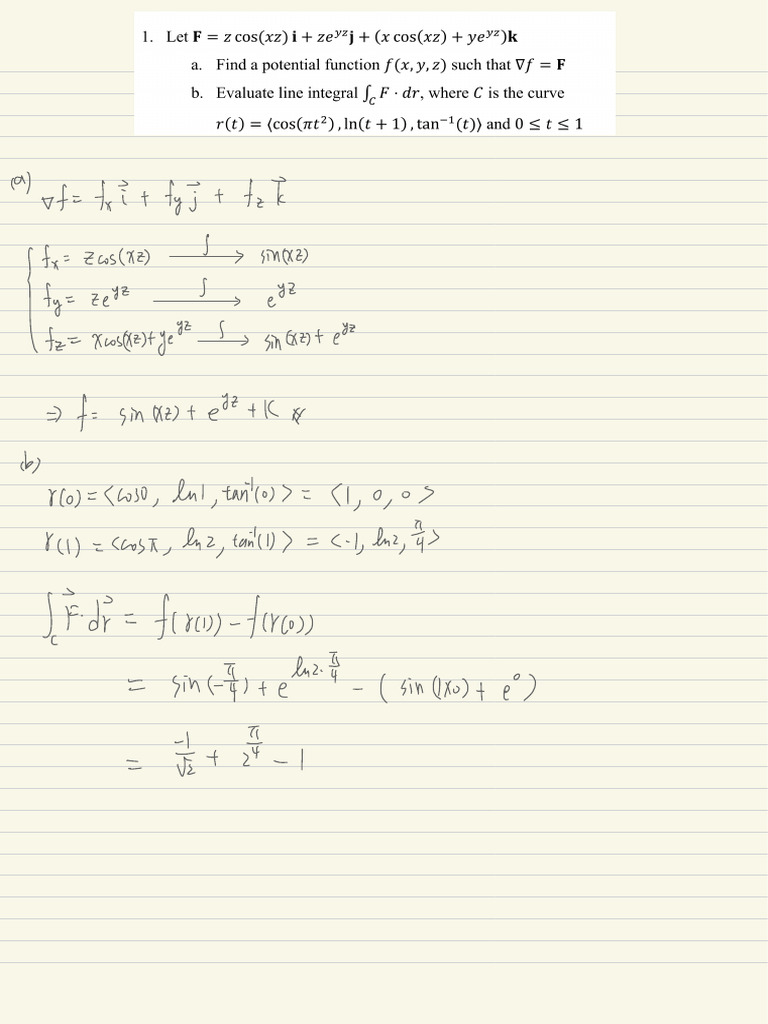 1. Let F = z cos(xz) i + ze^{yz}j + (x cos(xz) + ye^{yz})k
a. Find a potential function f(x, y, z) such that ∇f = F
b. Evaluate line integral ∫_C F · dr, where C is the curve
r(t) = ⟨cos(πt²), ln(t + 1), tan⁻¹(t)⟩ and 0 ≤ t ≤ 1
(a)
∇f = f_x i⃗ + f_y j⃗ + f_z k⃗
f_x = zcos(xz) —∫→ sin(xz)
f_y = ze^{yz} —∫→ e^{yz}
f_z = xcos(xz)+ye^{yz} —∫→ sin(xz) + e^{yz}
⇒ f = sin(xz) + e^{yz} + K
(b)
r(0) = <cos0, ln1, tan⁻¹(0)> = <1, 0, 0>
r(1) = <cosπ, ln2, tan⁻¹(1)> = <-1, ln2, π/4>
∫_C F⃗·dr⃗ = f(r(1)) - f(r(0))
= sin(-π/4) + e^{ln2·π/4} - (sin(1×0) + e^0)
= -1/√2 + 2^{π/4} - 1